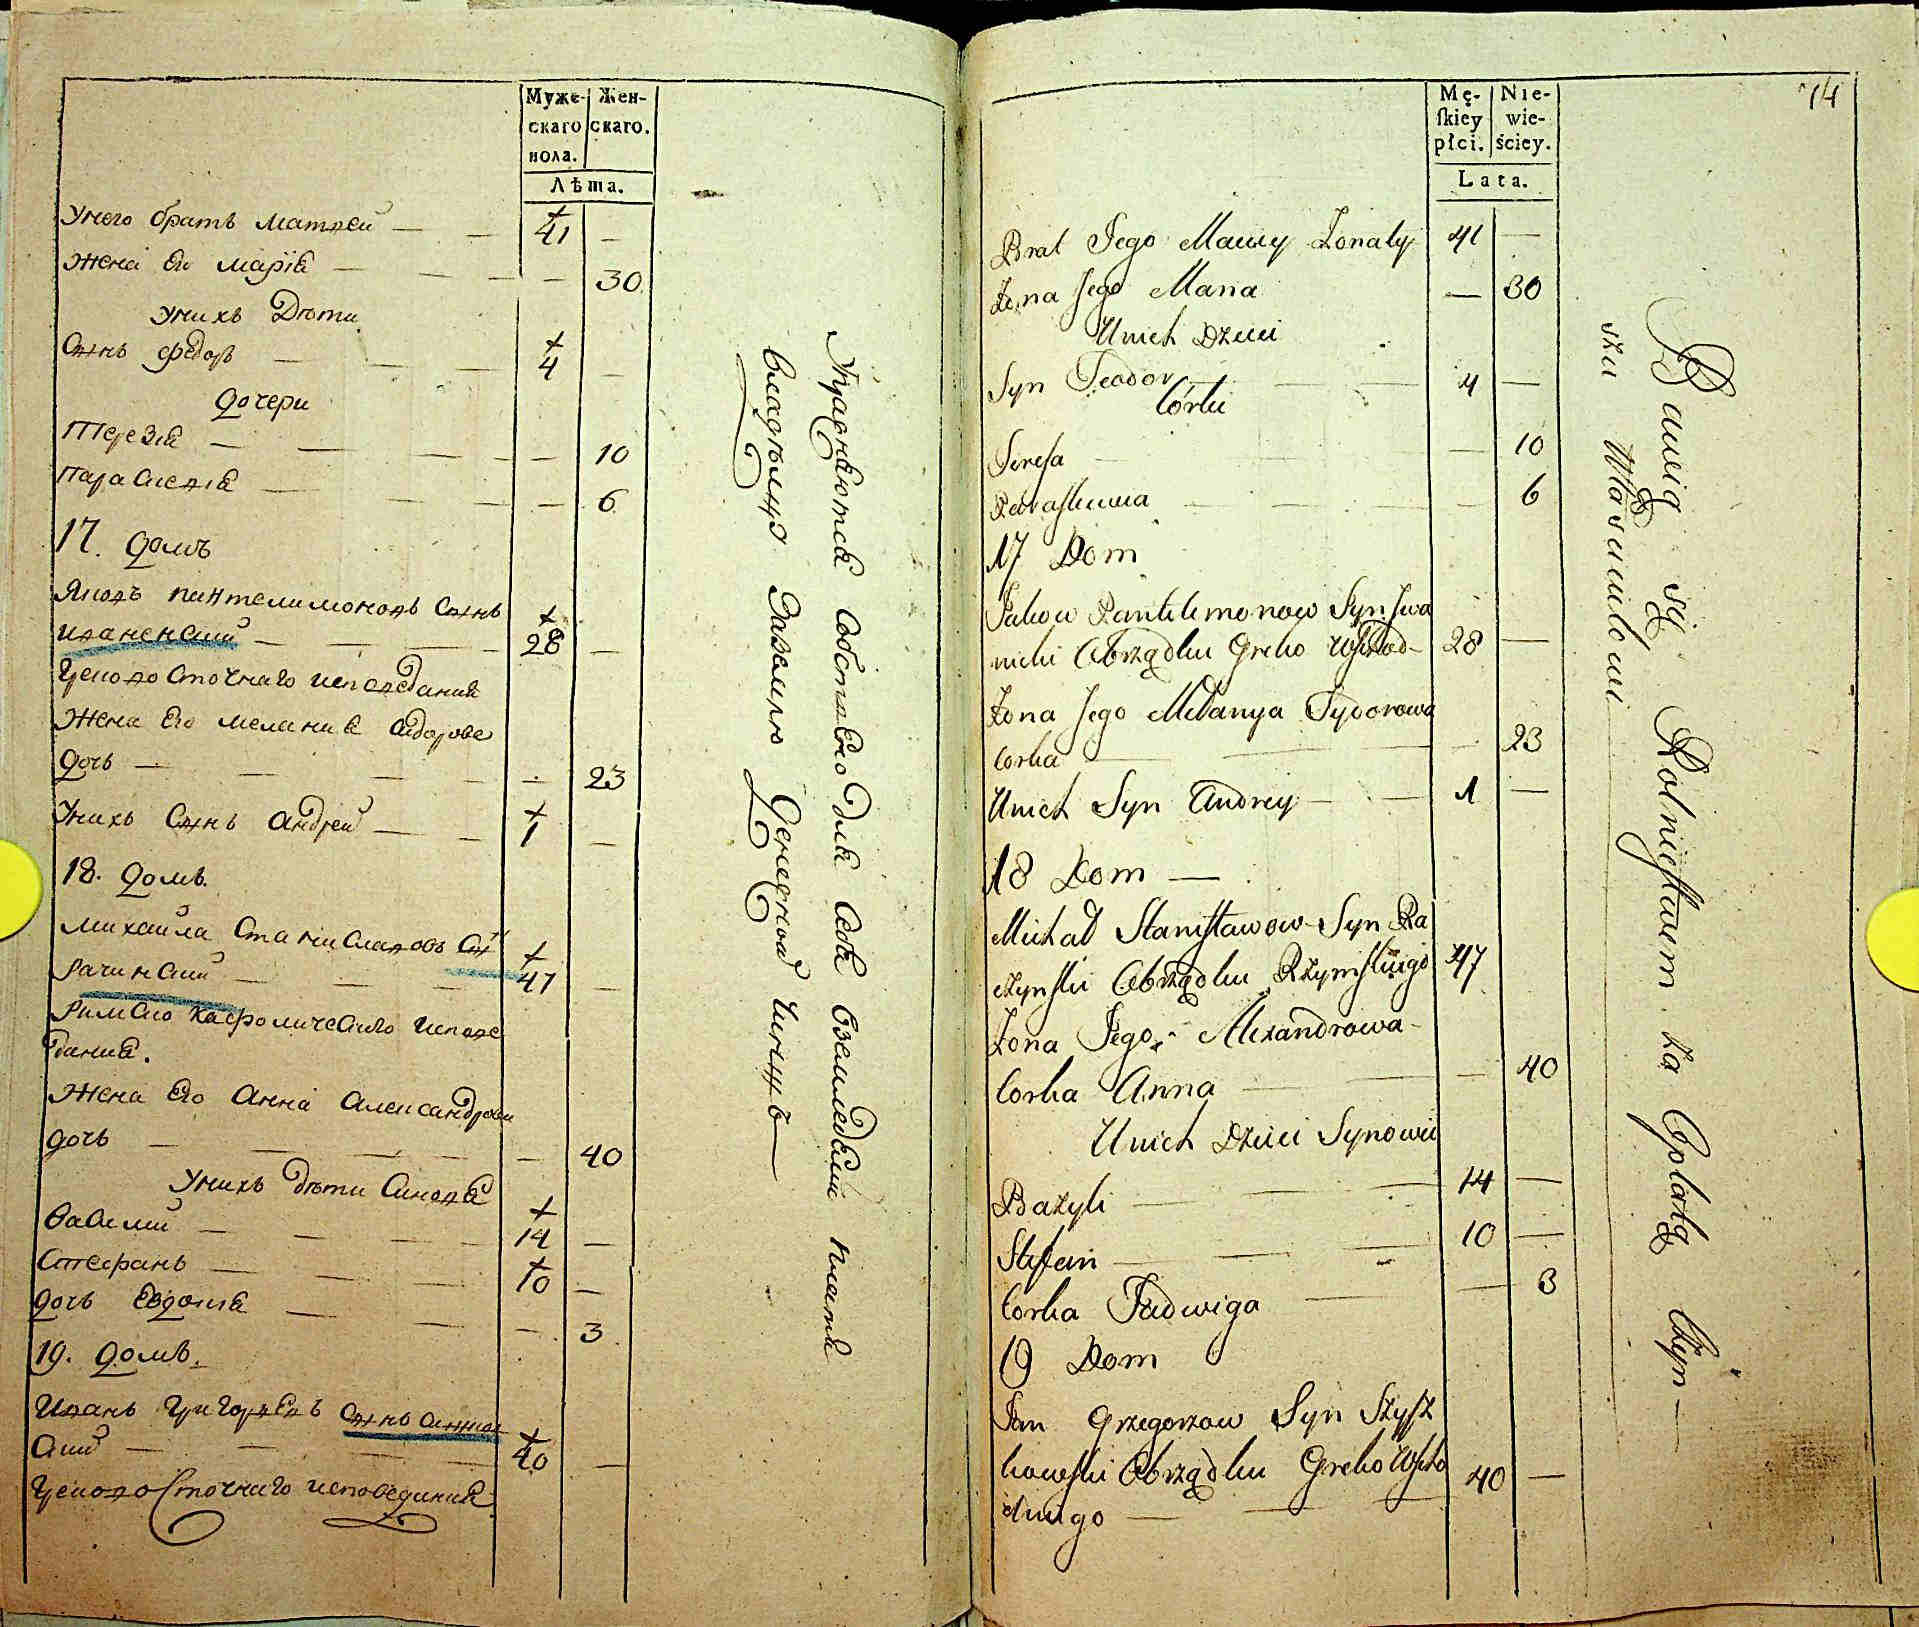 Муже-
скаго
пола.
Жен-
скаго.
Лѣта.
Унего братъ Матвей — — 41 —
Жена Его Марія — — — — 30
Унихъ Дѣти
Сынъ Федоръ — — — 4 —
Дочери
Терезія — — — — — 10
Парасковія — — — — 6
17. Домъ
Яковъ Пантелимоновъ Сынъ
Иваненский — — — — 28 —
Грекововосточнаго исповеданія
Жена Его Меланія Сидорова
Дочь — — — — — 23
Унихъ Сынъ Андрей — — 1 —
18. Домъ.
Михайла Станиславовъ Сынъ
Рачинский — — — 47 —
Римско Кафолическаго исповѣ
данія.
Жена Его Анна Александрова
Дочь — — — — — 40
Унихъ дѣти Синовья
Василий — — — — 14 —
Стефанъ — — — — 10 —
Дочь Евдокия — — — — 3
19. Домъ.
Иванъ Григорьевъ Сынъ
ский — — — — 40 —
Грековосточнаго исповеданія
Упражняются собственно для себя вземледѣлии платя
владѣлцу Заземлю Денежной Чиншъ —
14
Mę-
ſkiey
płci.
Nie-
wie-
ściey.
Lata.
Brat Jego Maciey Żonaty 41 —
Żona Jego Marya — 30
Unich Dzieci
Syn Teodor — — — 4 —
Córki
Teresa — — — 10
Paraskiewia — — — 6
17 Dom
Jakow Pantelimonow Syn Iwa
nicki Obrządku Greko Wschod- 28 —
Żona Jego Melanya Sydorowa
Corka — — — — 23
Unich Syn Andrey — — 1 —
18 Dom —
Michał Stanisławow Syn Ra
czynski Obrządku Rzymskiego 47
Żona Jego Alexandrowa
Corka Anna — — — 40
Unich Dzieci Synowie
Bazyli — — — 14 —
Stefan — — — 10 —
Corka Jadwiga — — 3
19 Dom
Jan Grzegorzow Syn Szysz
kowski Obrządku Greko Wscho 40 —
dniego — — —
Bawią się Rolnictwem za Opłatą Czyn —
szu Własciwielowi